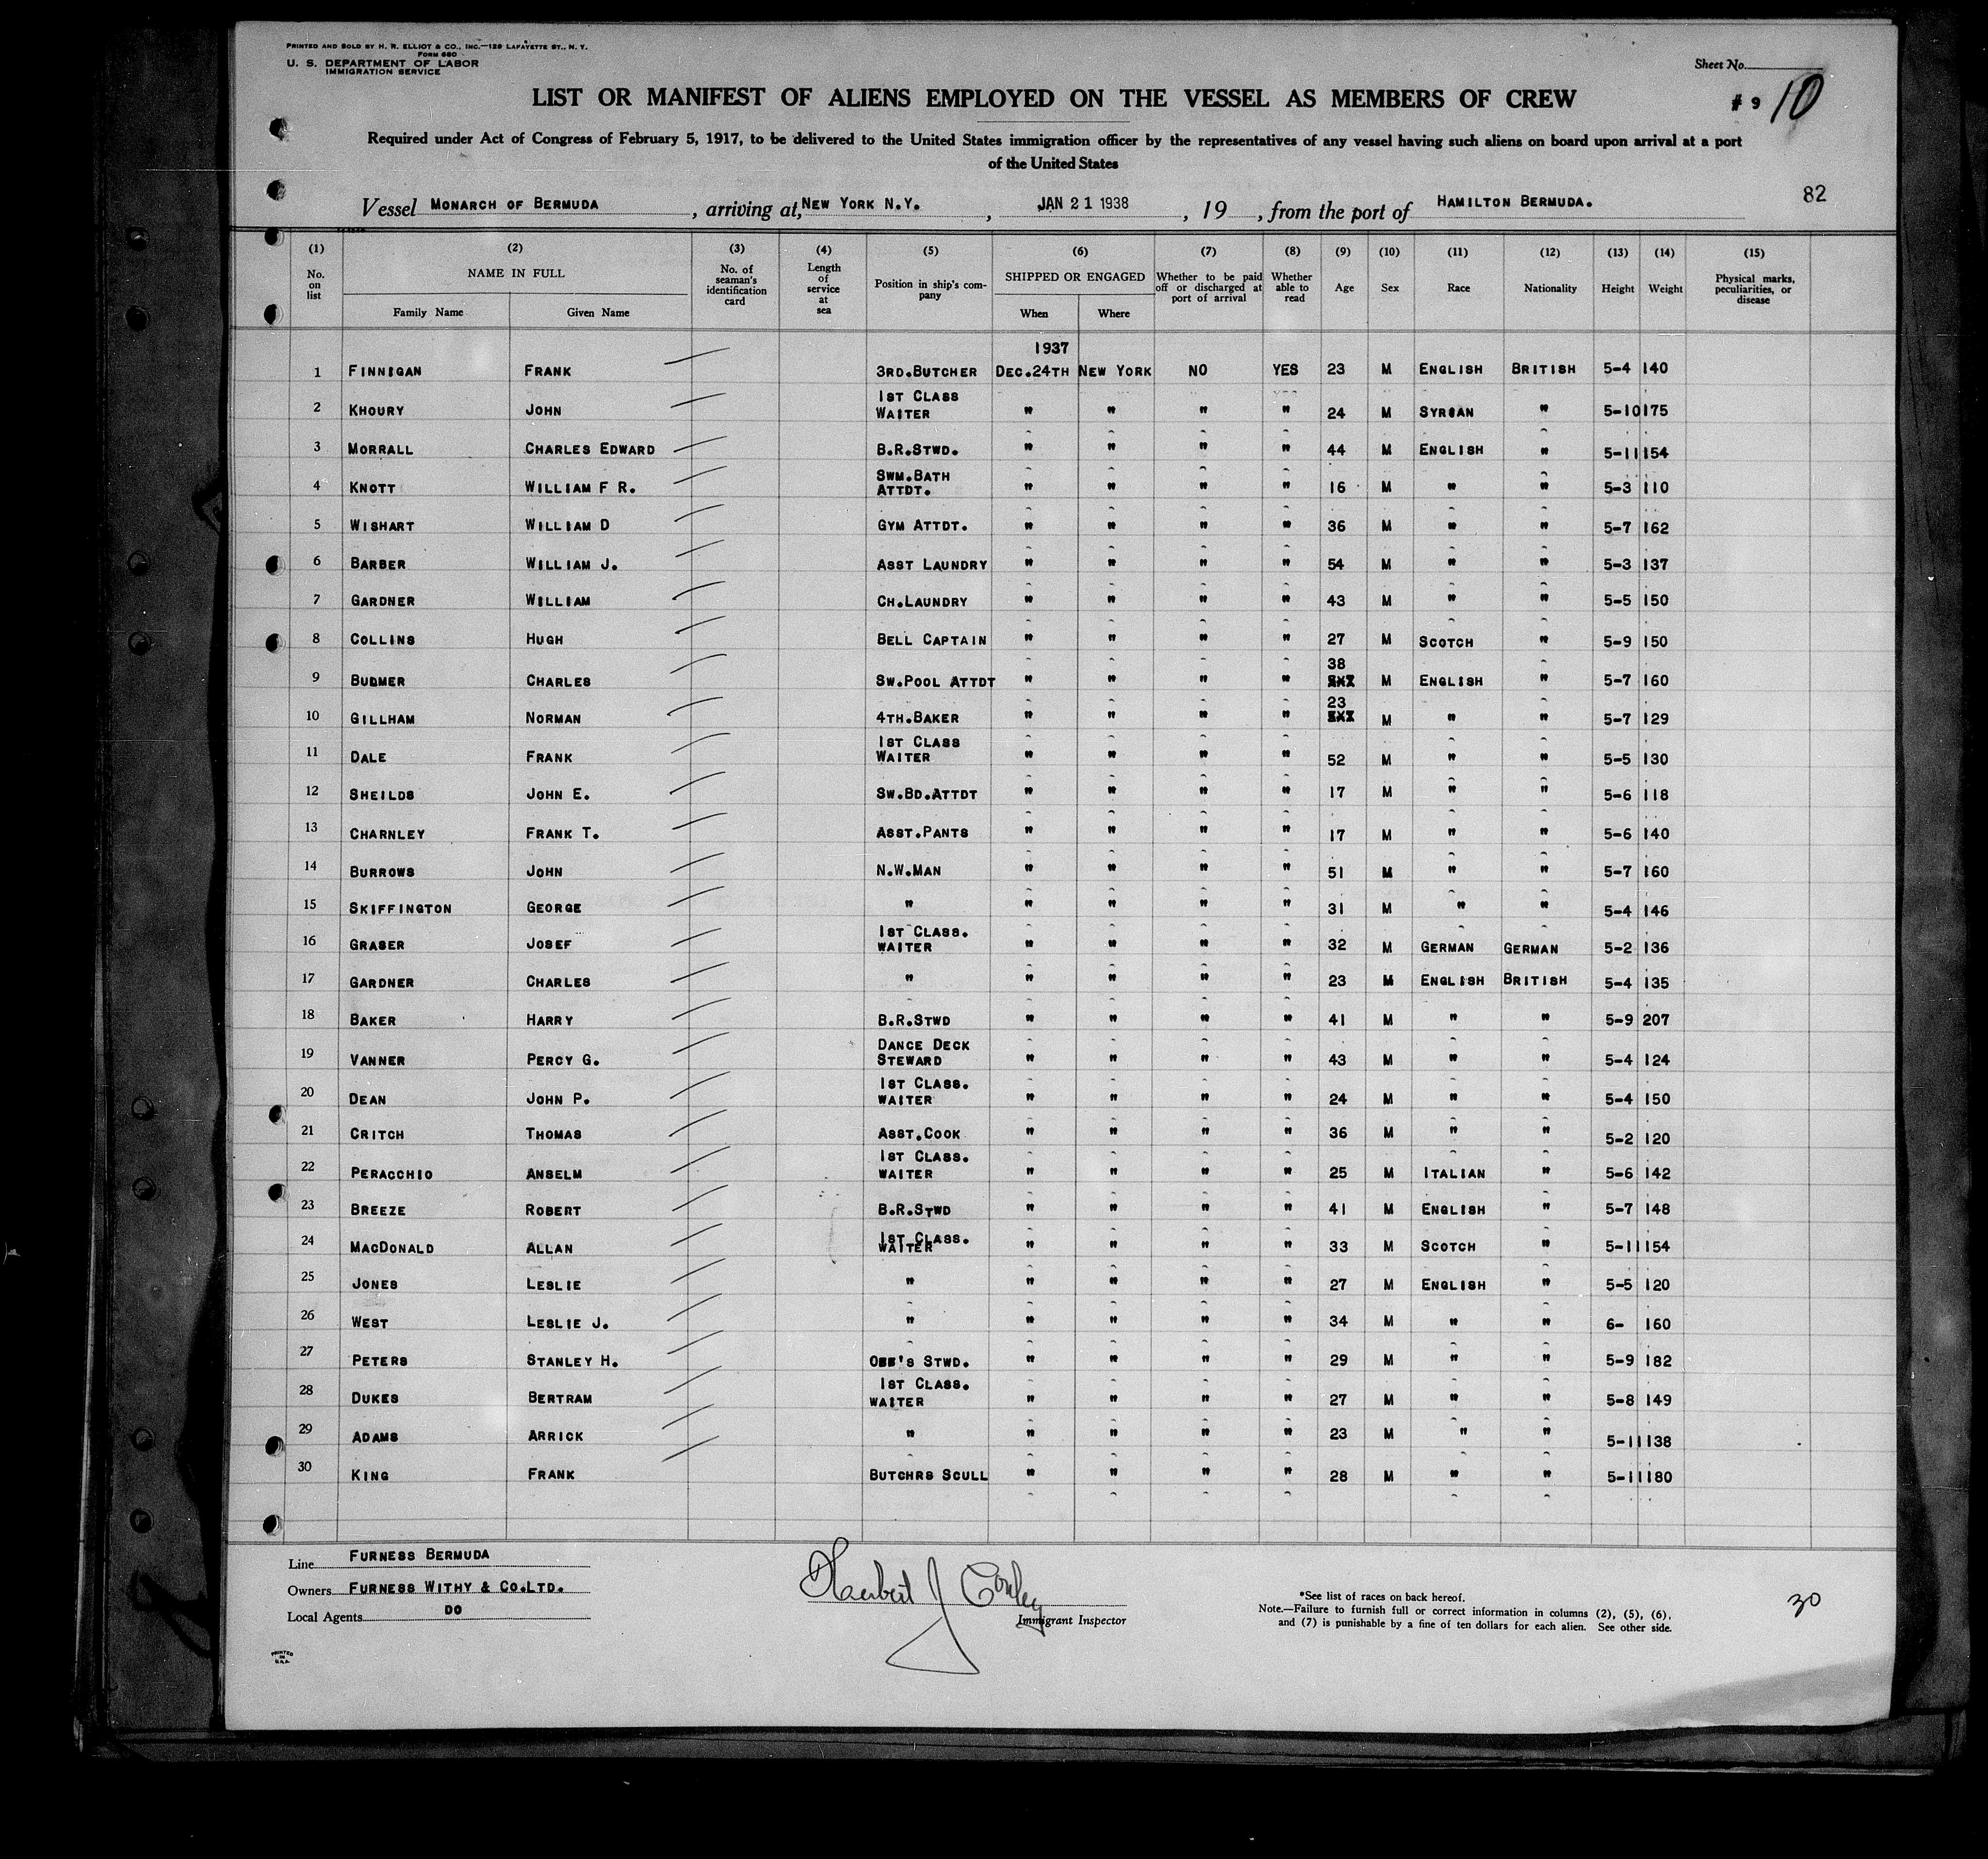 PRINTED AND SOLD BY H. R. ELLIOT & CO., INC.—129 LAFAYETTE ST., N. Y.
FORM 680
U. S. DEPARTMENT OF LABOR
IMMIGRATION SERVICE
Sheet No.
LIST OR MANIFEST OF ALIENS EMPLOYED ON THE VESSEL AS MEMBERS OF CREW
# 9 10
Required under Act of Congress of February 5, 1917, to be delivered to the United States immigration officer by the representatives of any vessel having such aliens on board upon arrival at a port
of the United States
82
Vessel MONARCH OF BERMUDA , arriving at, NEW YORK N.Y. , JAN 21 1938 , 19 , from the port of HAMILTON BERMUDA.
(1) (2) (3) (4) (5) (6) (7) (8) (9) (10) (11) (12) (13) (14) (15)
No. on list NAME IN FULL Family Name Given Name No. of seaman's identification card Length of service at sea Position in ship's company SHIPPED OR ENGAGED When Where Whether to be paid off or discharged at port of arrival Whether able to read Age Sex Race Nationality Height Weight Physical marks, peculiarities, or disease
1937
1 FINNIGAN FRANK 3RD.BUTCHER DEC.24TH NEW YORK NO YES 23 M ENGLISH BRITISH 5-4 140
2 KHOURY JOHN 1ST CLASS WAITER " " " " 24 M SYRIAN " 5-10 175
3 MORRALL CHARLES EDWARD B.R.STWD. " " " " 44 M ENGLISH " 5-11 154
4 KNOTT WILLIAM F R. SWM.BATH ATTDT. " " " " 16 M " " 5-3 110
5 WISHART WILLIAM D GYM ATTDT. " " " " 36 M " " 5-7 162
6 BARBER WILLIAM J. ASST LAUNDRY " " " " 54 M " " 5-3 137
7 GARDNER WILLIAM CH.LAUNDRY " " " " 43 M " " 5-5 150
8 COLLINS HUGH BELL CAPTAIN " " " " 27 M SCOTCH " 5-9 150
9 BUDMER CHARLES SW.POOL ATTDT " " " " 38 M ENGLISH " 5-7 160
10 GILLHAM NORMAN 4TH.BAKER " " " " 23 M " " 5-7 129
11 DALE FRANK 1ST CLASS WAITER " " " " 52 M " " 5-5 130
12 SHEILDS JOHN E. SW.BD.ATTDT " " " " 17 M " " 5-6 118
13 CHARNLEY FRANK T. ASST.PANTS " " " " 17 M " " 5-6 140
14 BURROWS JOHN N.W.MAN " " " " 51 M " " 5-7 160
15 SKIFFINGTON GEORGE " " " " " 31 M " " 5-4 146
16 GRASER JOSEF 1ST CLASS. WAITER " " " " 32 M GERMAN GERMAN 5-2 136
17 GARDNER CHARLES " " " " " 23 M ENGLISH BRITISH 5-4 135
18 BAKER HARRY B.R.STWD " " " " 41 M " " 5-9 207
19 VANNER PERCY G. DANCE DECK STEWARD " " " " 43 M " " 5-4 124
20 DEAN JOHN P. 1ST CLASS. WAITER " " " " 24 M " " 5-4 150
21 CRITCH THOMAS ASST.COOK " " " " 36 M " " 5-2 120
22 PERACCHIO ANSELM 1ST CLASS. WAITER " " " " 25 M ITALIAN " 5-6 142
23 BREEZE ROBERT B.R.STWD " " " " 41 M ENGLISH " 5-7 148
24 MACDONALD ALLAN 1ST CLASS. WAITER " " " " 33 M SCOTCH " 5-11 154
25 JONES LESLIE " " " " " 27 M ENGLISH " 5-5 120
26 WEST LESLIE J. " " " " " 34 M " " 6- 160
27 PETERS STANLEY H. STWD. " " " " 29 M " " 5-9 182
28 DUKES BERTRAM 1ST CLASS. WAITER " " " " 27 M " " 5-8 149
29 ADAMS ARRICK " " " " " 23 M " " 5-11 138
30 KING FRANK BUTCHRS SCULL " " " " 28 M " " 5-11 180
Line FURNESS BERMUDA
Owners FURNESS WITHY & CO.LTD.
Local Agents DO
Herbert J Conley
Immigrant Inspector
*See list of races on back hereof.
Note.—Failure to furnish full or correct information in columns (2), (5), (6),
and (7) is punishable by a fine of ten dollars for each alien. See other side.
30
PRINTED
IN
U.S.A.